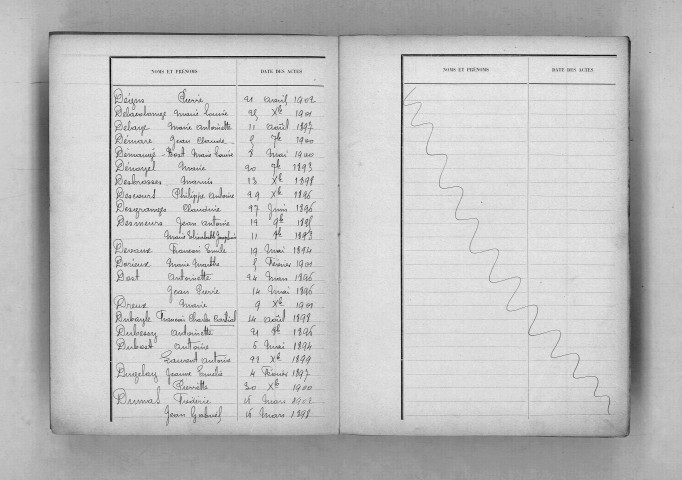 NOMS ET PRÉNOMS DATE DES ACTES
Pierre 21 avril 1902
Marie Louise 25 Xbre 1901
Delaye Marie Antoinette 11 août 1897
Démare Jean Claude 5 7bre 1900
Bost Marie Louise 8 Mai 1900
Marie 20 7bre 1893
Desbrosses Marius 13 Xbre 1898
Descourt Philippe Antoine 29 Xbre 1896
Desgranges Claudine 27 Juin 1896
Desmeurs Jean Antoine 19 9bre
Marie Elisabeth Joséphine 11 1893
Devaux François Emile 19 Mai 1894
Dorieux Marie Marthe 5 Février 1901
Dost Antoinette 24 Mars 1896
Jean Pierre 14 Mai 1896
Dreux Marie 9 Xbre 1901
Dubayle François Charles 14 août 1898
Dubessy Antoinette 21 1896
Dubost Antoine 5 Mai 1894
Laurent Antoine 22 Xbre 1899
Jeanne Emélie 4 Février 1897
Pierrette 30 Xbre 1900
Dumas Frédéric 16 Mars 1902
Jean Gabriel 16 Mars 1898
NOMS ET PRÉNOMS DATE DES ACTES